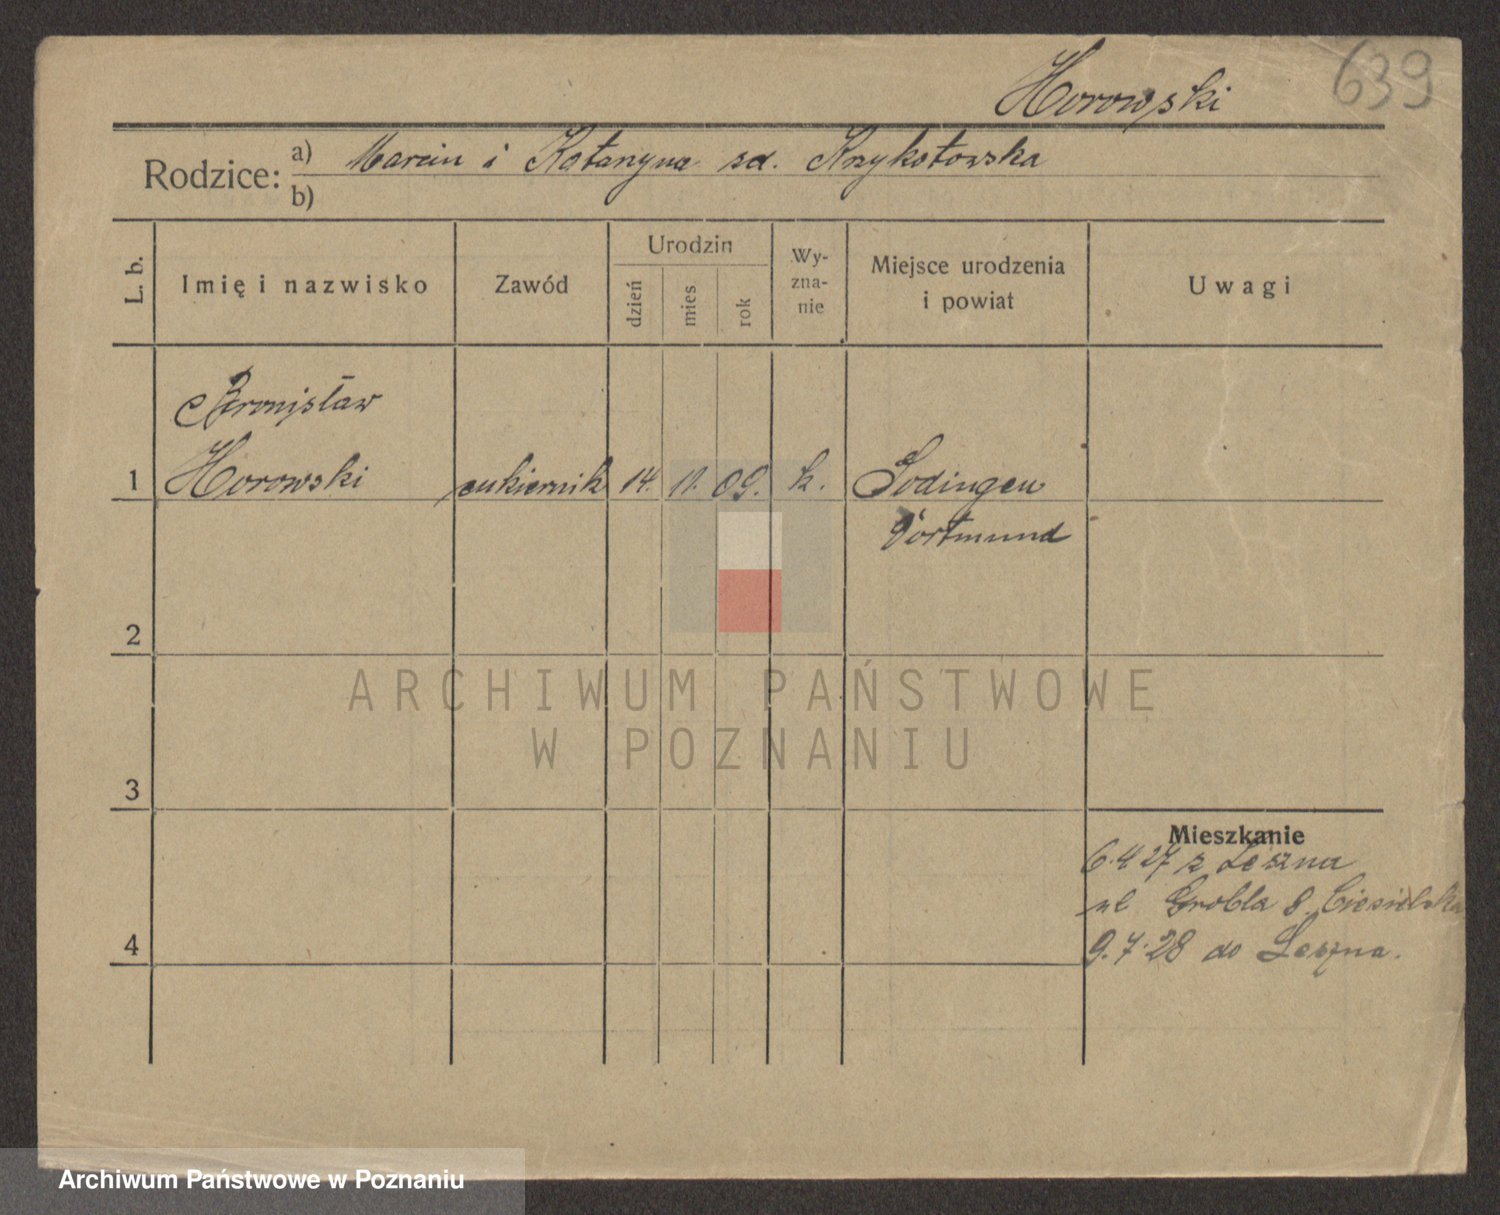 Horowski 639
Rodzice: a) Marcin i Katarzyna zd. Krzykotowska
b)
L. b. Imię i nazwisko Zawód Urodzin dzień mies rok Wy-zna-nie Miejsce urodzenia i powiat Uwagi
Bronisław
1 Horowski cukiernik 14. 11. 09. k. Sodingen
Dortmund
2
ARCHIWUM PAŃSTWOWE
W POZNANIU
3
Mieszkanie
6.4 27 z Leszna
ul Grobla 8 Ciesielska
4 9.7.28 do Leszna.
Archiwum Państwowe w Poznaniu